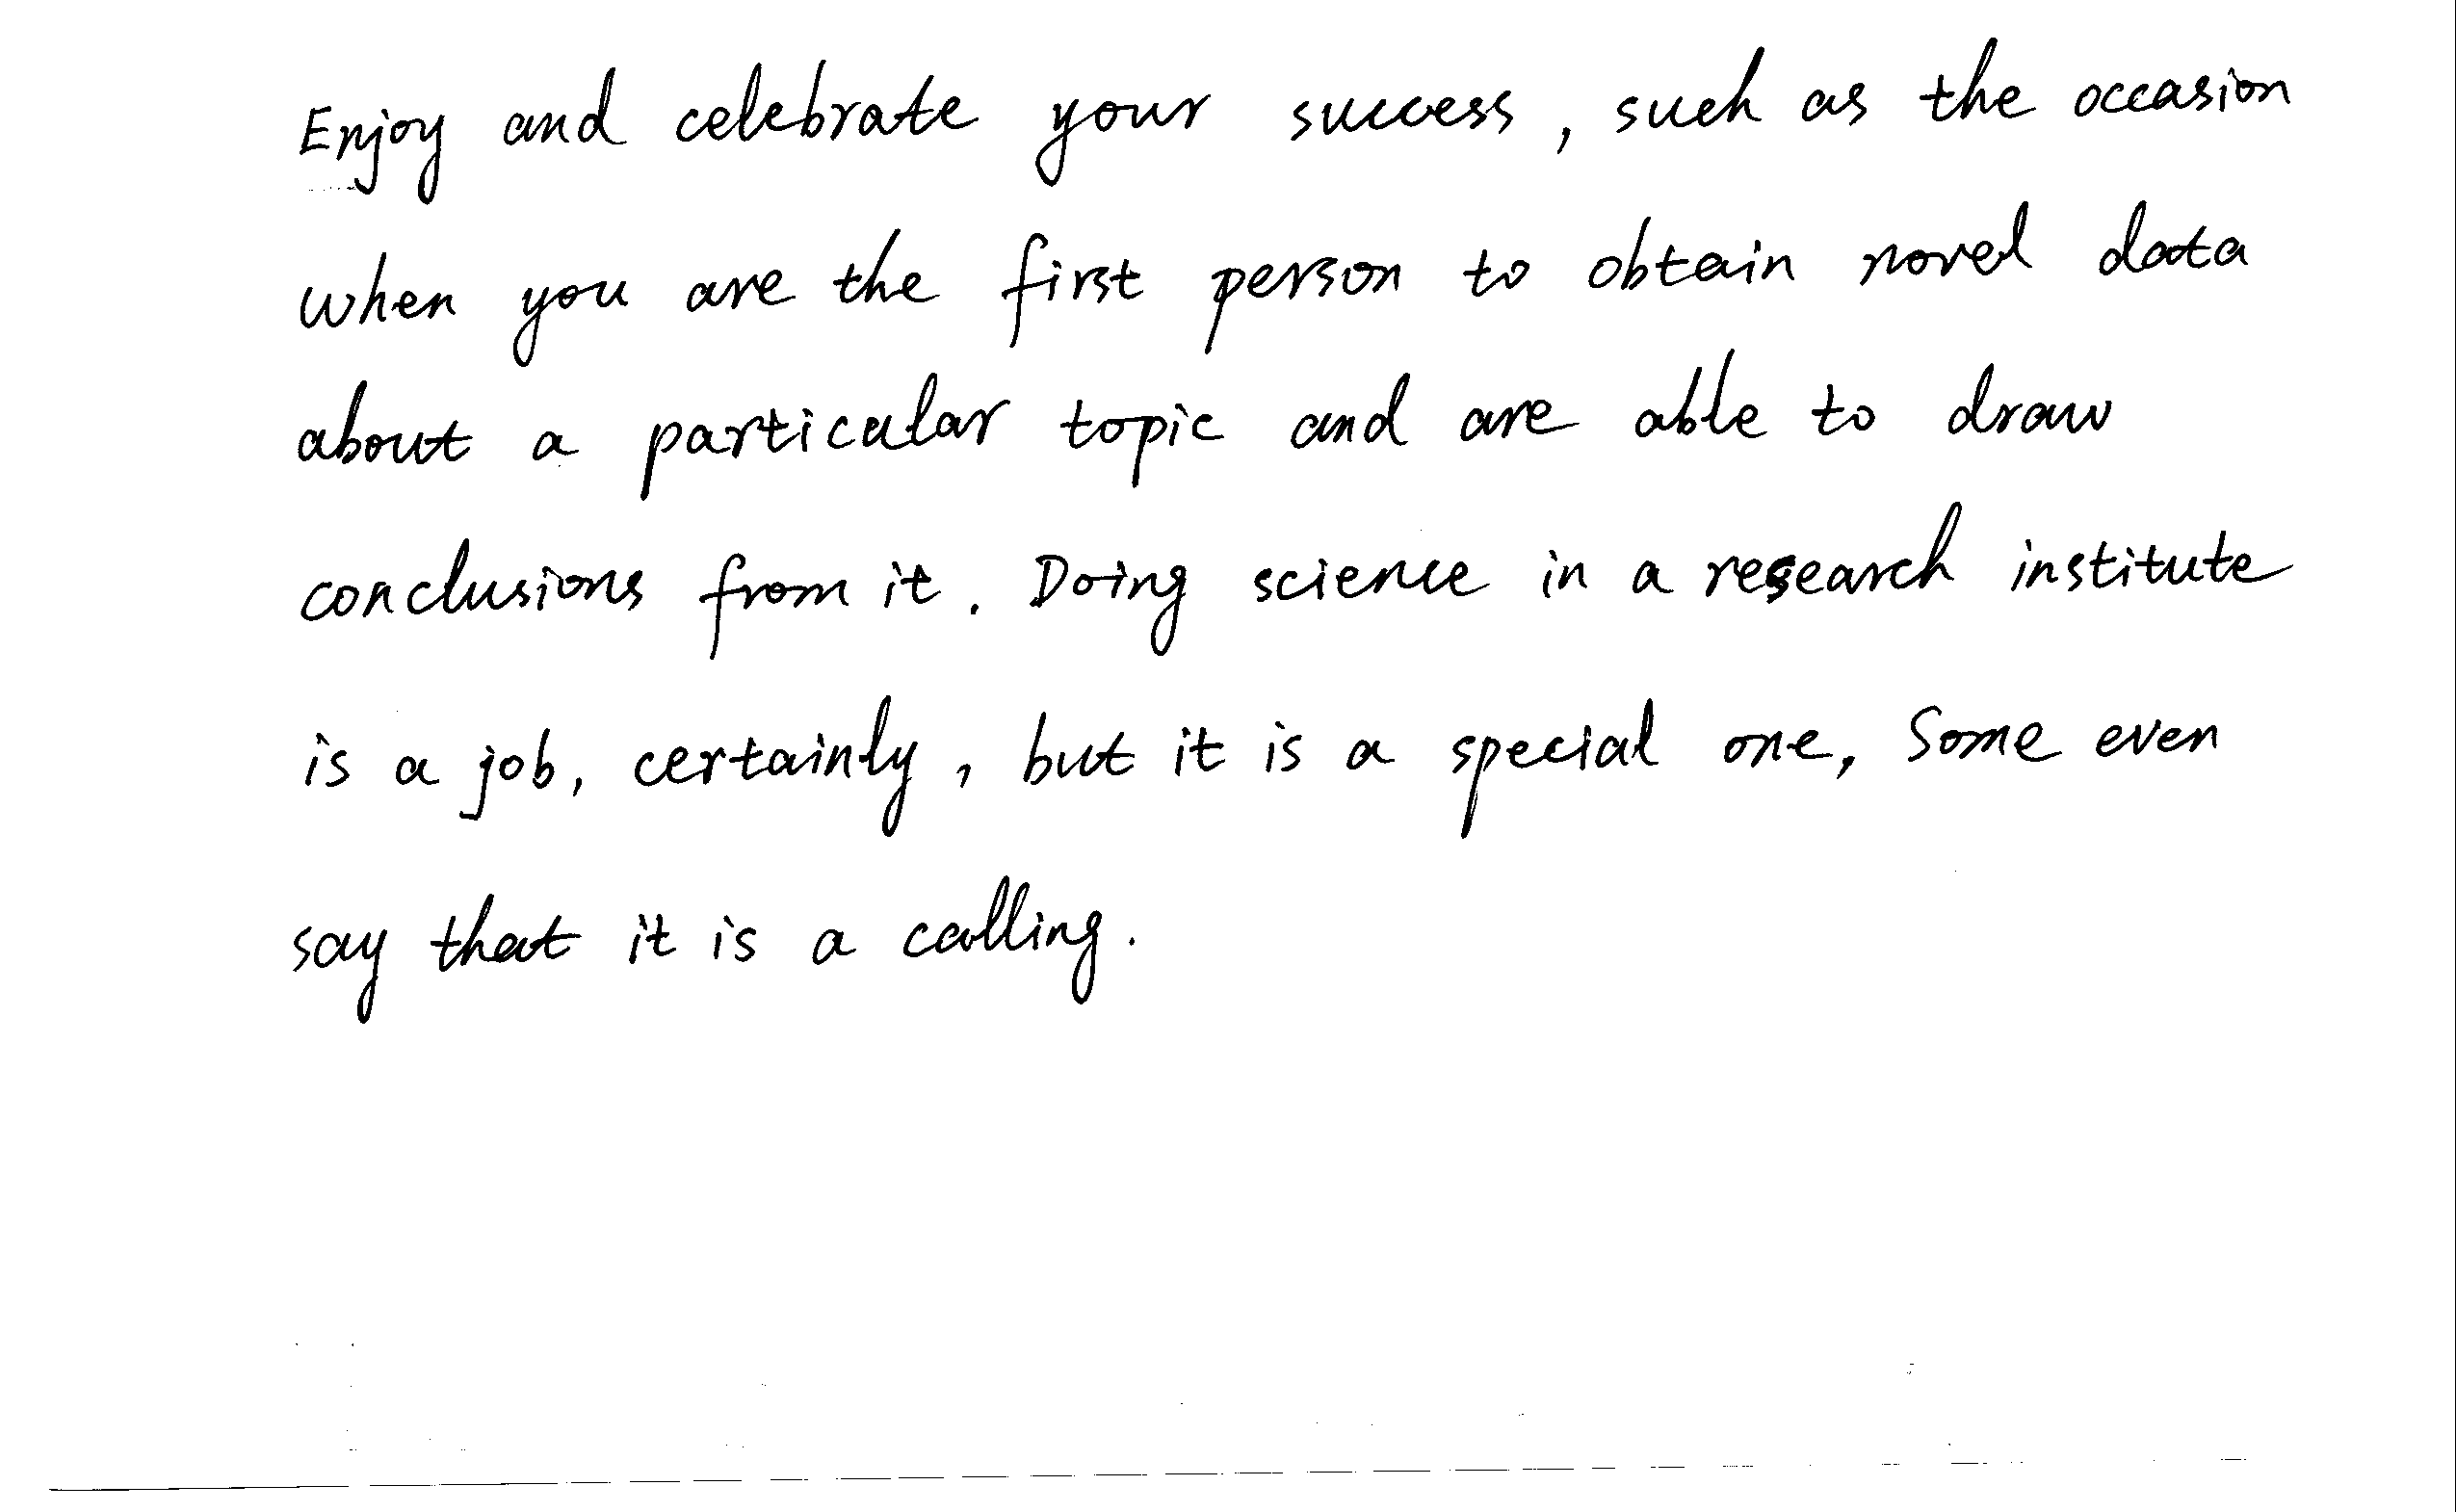 Enjoy and celebrate your success, such as the occasion
when you are the first person to obtain novel data
about a particular topic and are able to draw
conclusions from it. Doing science in a research institute
is a job, certainly, but it is a special one, Some even
say that it is a calling.